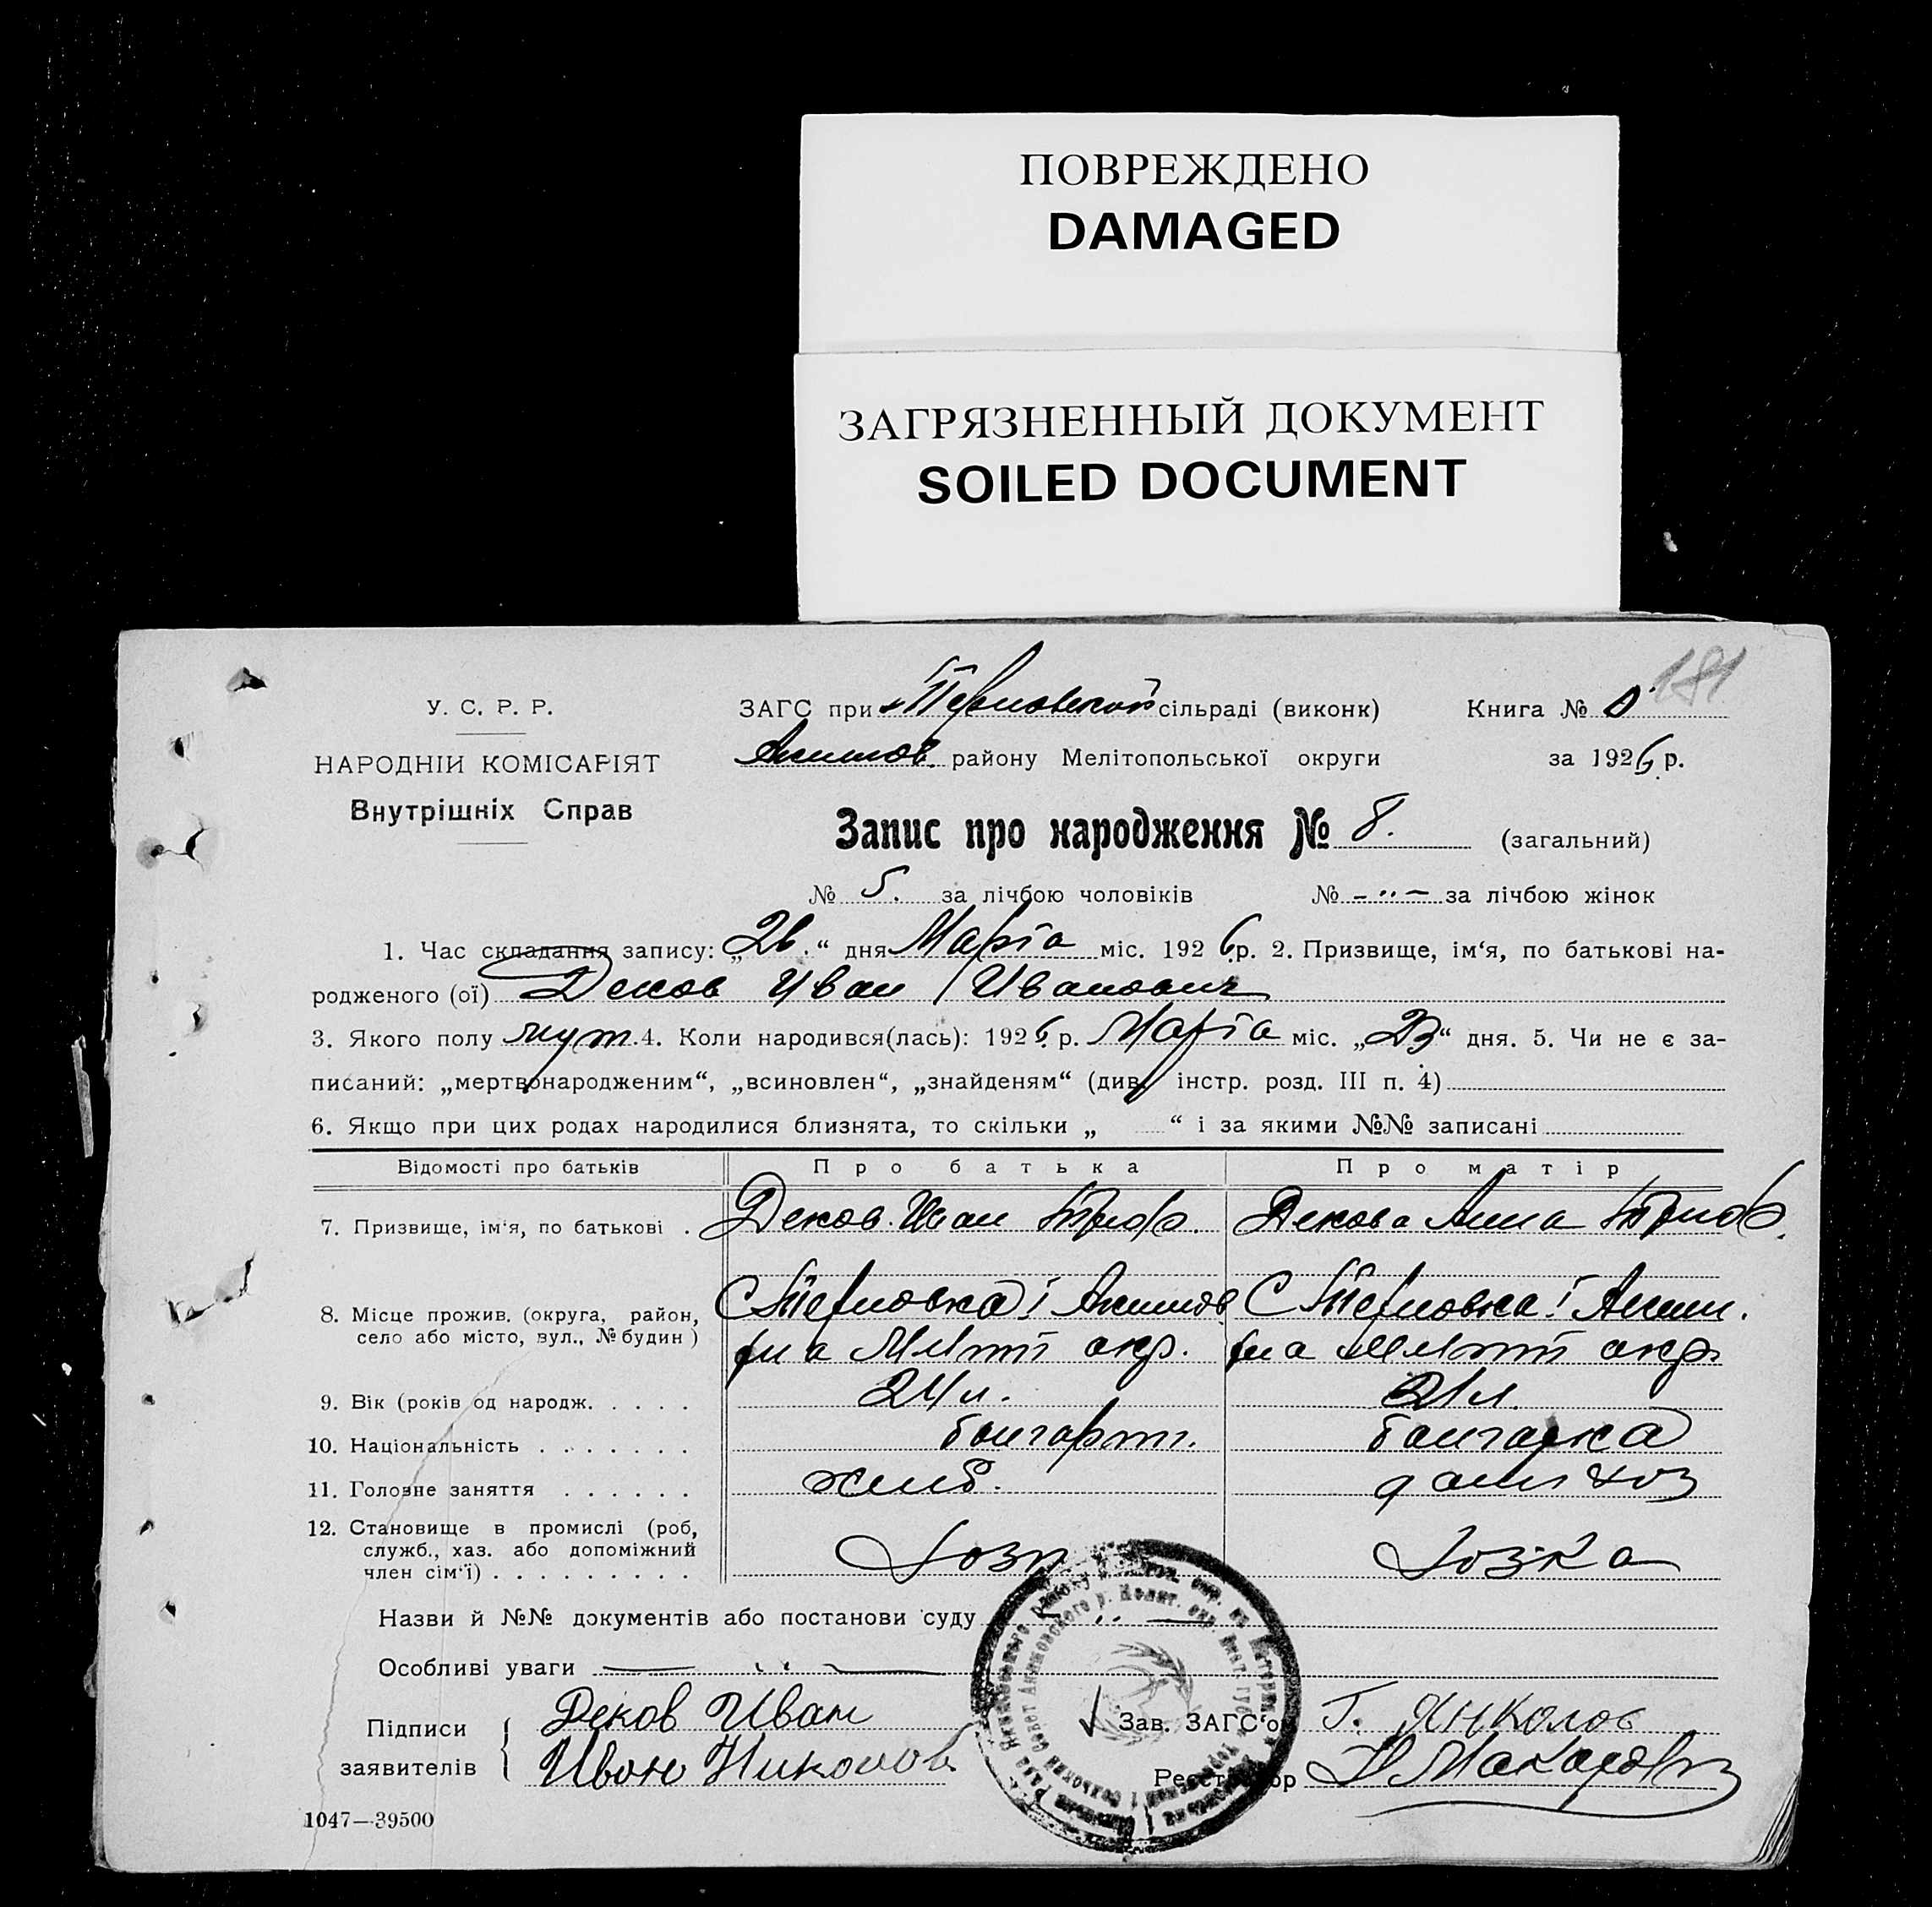 ПОВРЕЖДЕНО
DAMAGED
ЗАГРЯЗНЕННЫЙ ДОКУМЕНТ
SOILED DOCUMENT
181
У. С. Р. Р.
НАРОДНІЙ КОМІСАРІЯТ
Внутрішніх Справ
ЗАГС при Терновской сільраді (виконк) Книга №
Акимов. району Мелітопольської округи за 1926 р.
Запис про народження № 8. (загальний)
№ 5. за лічбою чоловіків № – ·· – за лічбою жінок
1. Час складання запису: „26.“ дня Марта міс. 1926 р. 2. Призвище, ім‘я, по батькові на-
родженого (ої) Деков Иван Иванович
3. Якого полу муж. 4. Коли народився(лась): 1926 р. Марта міс. „23“ дня. 5. Чи не є за-
писаний: „мертвонародженим“, „всиновлен“, „знайденям“ (див. інстр. розд. III п. 4)
6. Якщо при цих родах народилися близнята, то скільки „ “ і за якими №№ записані
Відомості про батьків Про батька Про матір
7. Призвище, ім‘я, по батькові . Деков Иван Декова Анна
8. Місце прожив. (округа, район, село або місто, вул., № будин) С Терновка Акимов С Терновка Аким.
р на Мелит окр. р на Мелит окр.
9. Вік (років од народж. . . . . 24 л. 21 л.
10. Національність . . . . . . . болгарин. болгарка
11. Головне заняття . . . . . . хлеб. дом хоз
12. Становище в промислі (роб, служб., хаз. або допоміжний член сім‘ї) . . . . . . . . . Хозяин Хозка
Назви й №№ документів або постанови суду
Особливі уваги — ·· —
Підписи заявителів { Деков Иван
Иван Николов
Зав. ЗАГС‘ом Г. Янколов
Реєстратор Н Макаров
1047—39500